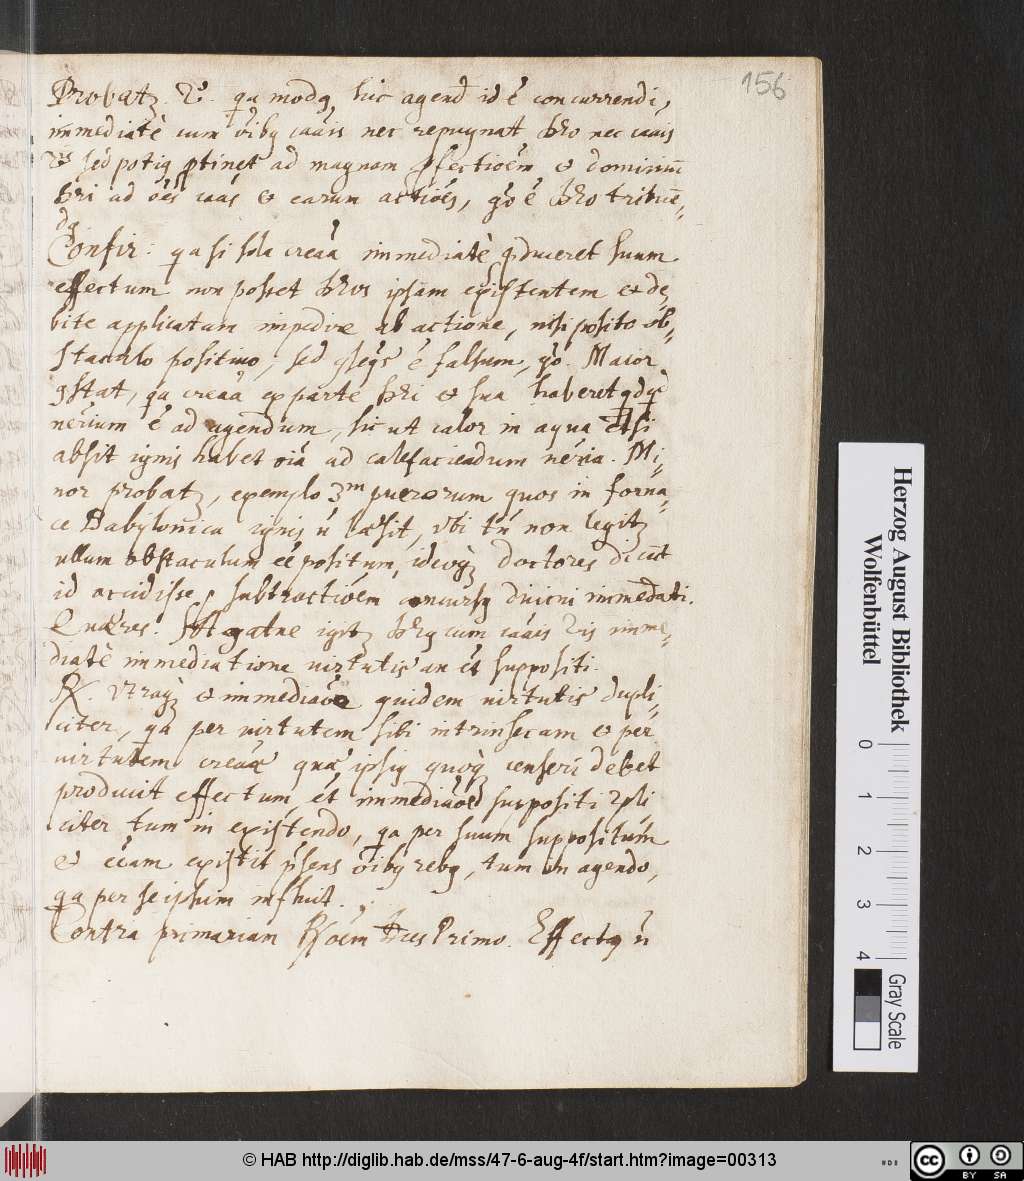 156
Probatꝫ. 2º. qa modꝯ hic agendi id ē concurrendi,
immediatè cum oībꝯ caūis nec repugnat Deo nec caūis
2is sed potiꝯ ꝑtinet ad magnam ꝑfectioēm et dominiū
Dei ad oēs caās et earum actioēs, gō ē Deo tribuē=
dꝯ
Confir: qa si sola creāa immediatè ꝓduceret suum
effectum non posset Deus ipsam existentem et de,
bite applicatam impedire ab actione, nisi posito ob=
staculo positiuo, sed ꝯseqs ē falsum, gō. Maior
ꝯstat, qa creāa ex parte Dei et sua haberet qdqd
nēcium ē ad agendum, sic ut calor in aqua etsi
absit ignis habet oīa ad calefaciendum nēria. Mi=
nor probatꝫ, exemplo 3m puerorum quos in forna=
ce Babylonica ignis ñ laesit, vbi tñ non legitꝫ
ullum obstaculum eē positum, ideoqꝫ doctores dicūt
id accidisse ꝑ subtractioēm concursꝯ diuini immediati.
Quaeres. Agatne igitꝫ Deꝯ cum caūis 2is imme=
diatè immediatione uirtutis an et suppositi.
R. Vtraqꝫ et immediaōe quidem uirtutis dupli=
citer, qa per uirtutem sibi intrinsecam et per
uirtutem creāae quae ipsiꝯ quoqꝫ censeri debet
producit effectum, et immediaōe suppositi 2pli
citer tum in existendo, qa per suum suppositum
et eēam existit pr̄seas oībꝯ rebꝯ, tum in agendo,
qa per seipsum influit.
Contra primariam Rsioēm Dices Primo. Effectꝯ ñ
Herzog August Bibliothek
Wolfenbüttel
0 1 2 3 4
Gray Scale
© HAB http://diglib.hab.de/mss/47-6-aug-4f/start.htm?image=00313
cc BY SA